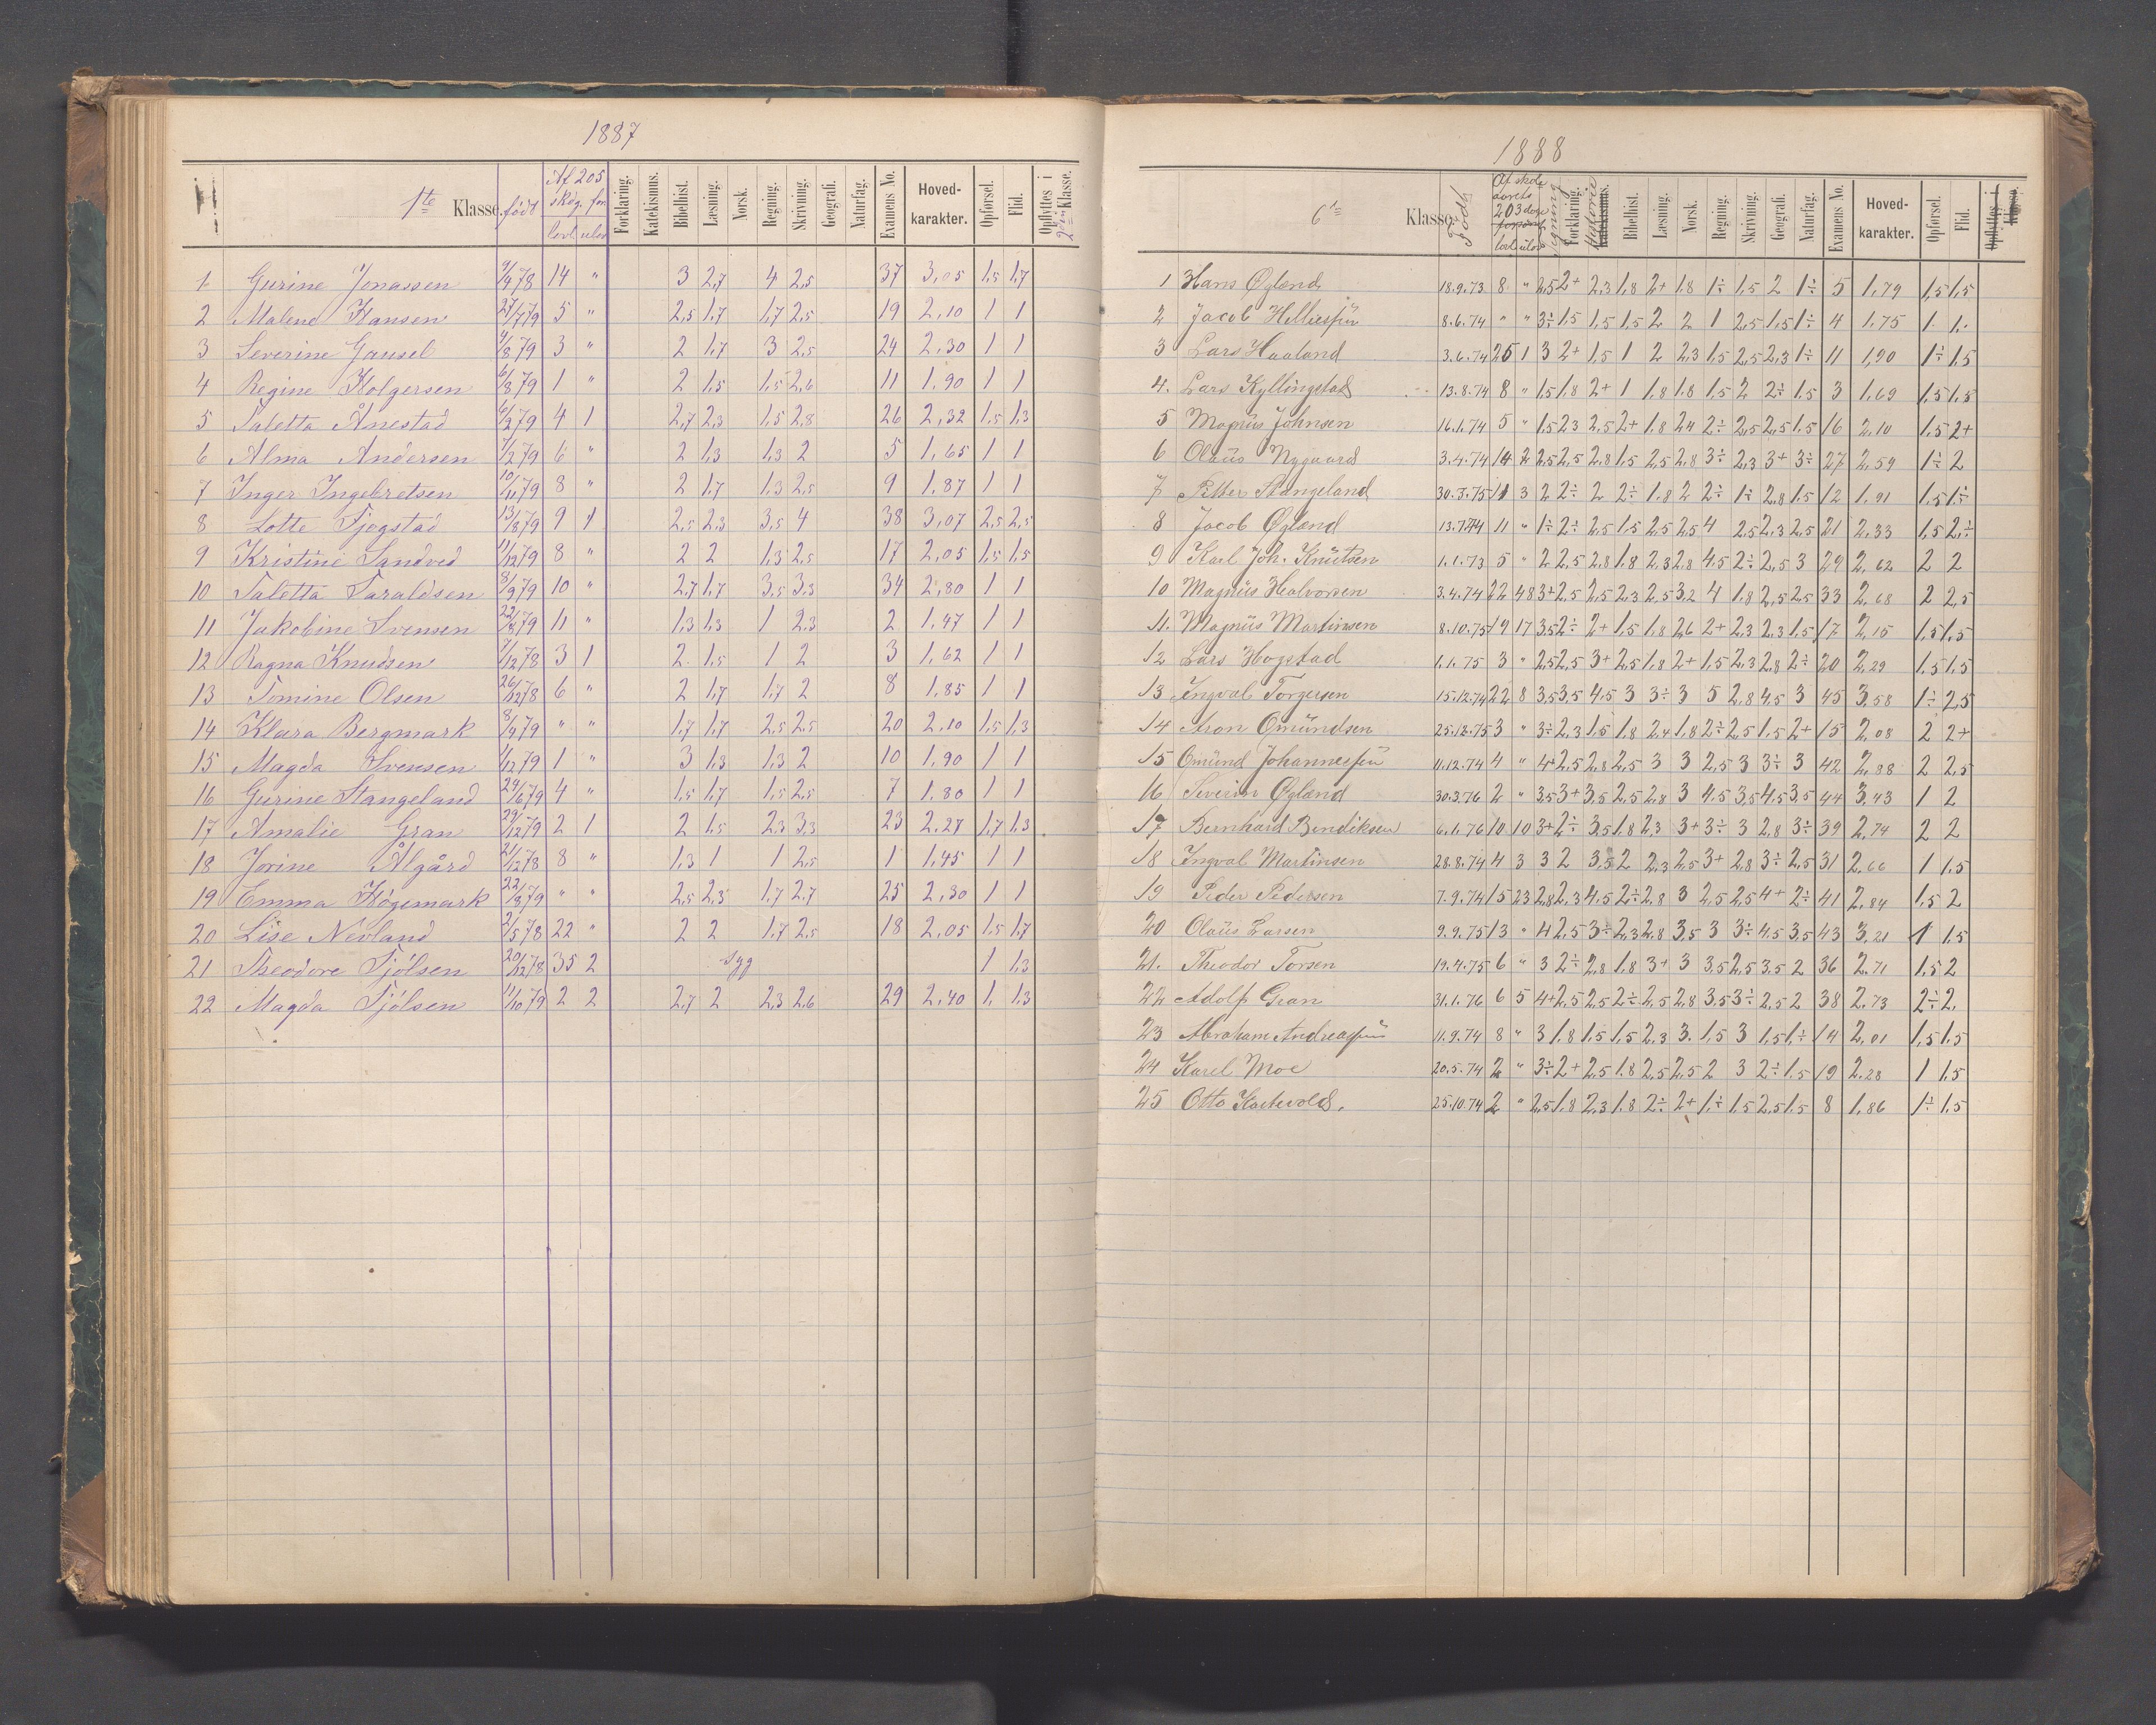 1887
1te Klasse. født Af 205 skdg. fors. lovl. ulovl. Forklaring. Katekismus. Bibelhist. Læsning. Norsk. Regning. Skrivning. Geografi. Naturfag. Examens No. Hoved-karakter. Opførsel. Flid. Opflyttes i 2den Klasse.
1 Gurine Jonassen 9/9 78 14 " 3 2,7 4 2,5 37 3,05 1,5 1,7
2 Malene Hansen 27/7 79 5 " 2,5 1,7 1,7 2,5 19 2,10 1 1
3 Severine Gausel 4/8 79 3 " 2 1,7 3 2,5 24 2,30 1 1
4 Regine Holgersen 6/8 79 1 " 2 1,5 1,5 2,6 11 1,90 1 1
5 Taletta Ånestad 6/2 79 4 1 2,7 2,3 1,5 2,8 26 2,32 1,5 1,3
6 Alma Andersen 7/2 79 6 " 2 1,3 1,3 2 5 1,65 1 1
7 Inger Ingebretsen 10/11 79 8 " 2 1,7 1,3 2,5 9 1,87 1 1
8 Lotte Tjogstad 13/8 79 9 1 2,5 2,3 3,5 4 38 3,07 2,5 2,5
9 Kristine Sandved 11/12 79 8 " 2 2 1,3 2,5 17 2,05 1,5 1,5
10 Taletta Taraldsen 8/9 79 10 " 2,7 1,7 3,5 3,3 34 2,80 1 1
11 Jakobine Svensen 22/8 79 11 " 1,3 1,3 1 2,3 2 1,47 1 1
12 Ragna Knudsen 7/12 78 3 1 2 1,5 1 2 3 1,62 1 1
13 Tomine Olsen 26/12 78 6 " 2 1,7 1,7 2 8 1,85 1 1
14 Klara Bergmark 8/9 79 " " 1,7 1,7 2,5 2,5 20 2,10 1,5 1,3
15 Magda Svensen 1/12 79 1 " 3 1,3 1,3 2 10 1,90 1 1
16 Gurine Stangeland 29/6 79 4 " 1,5 1,7 1,5 2,5 7 1,80 1 1
17 Amalie Gran 29/12 79 2 1 2 1,5 2,3 3,3 23 2,27 1,7 1,3
18 Jorine Ålgård 21/12 78 8 " 1,3 1 1 2,5 1 1,45 1 1
19 Emma Högemark 22/8 79 " " 2,5 2,3 1,7 2,7 25 2,30 1 1
20 Lise Nevland 2/5 78 22 " 2 2 1,7 2,5 18 2,05 1,5 1,7
21 Theodore Tjölsen 20/12 78 35 2 syg 1 1,3
22 Magda Tjölsen 11/10 79 2 2 2,7 2 2,3 2,6 29 2,40 1, 1,3
1888
6te Klasse. Født Af skole-aarets 203 dage forsømt lovl. ulovl. Tegning Forklaring. Historie Katekismus. Bibelhist. Læsning. Norsk. Regning. Skrivning. Geografi. Naturfag. Examens No. Hoved-karakter. Opførsel. Flid. Opflyttes i Klasse.
1 Hans Øgland 18.9.73 8 " 2,5 2+ 2,3 1,8 2+ 1,8 1÷ 1,5 2 1÷ 5 1,79 1,5 1,5
2 Jacob Helliesen 8.6.74 " " 3÷ 1,5 1,5 1,5 2 2 1 2,5 1,5 1÷ 4 1,75 1. 1.
3 Lars Haaland 3.6.74 25 1 3 2+ 1,5 1 2 2,3 1,5 2,5 2,3 1÷ 11 1,90 1÷ 1,5
4. Lars Kyllingstad 13.8.74 8 " 1,5 1,8 2+ 1 1,8 1,8 1,5 2 2÷ 1,5 3 1,69 1,5 1,8
5 Magnus Johnsen 16.1.74 5 " 1,5 2,3 2,5 2+ 1,8 2,4 2÷ 2,5 2,5 1,5 16 2,10 1,5 2+
6 Olaüs Nygaard 3.4.74 14 2 2,5 2,5 2,8 1,5 2,5 2,8 3÷ 2,3 3+ 3÷ 27 2,59 1÷ 2
7 Petter Stangeland 30.3.75 11 3 2 2÷ 2 2÷ 1,8 2 2÷ 1÷ 2,8 1,5 12 1,91 1,5 1÷
8 Jacob Øgland 13.7.74 11 " 1÷ 2÷ 2,5 1,5 2,5 2,5 4 2,5 2,3 2,5 21 2,33 1,5 2÷
9 Karl Joh. Knütsen 1.1.73 5 " 2 2,5 2,8 1,8 2,3 2,8 4,5 2÷ 2,5 3 29 2,62 2 2
10 Magnüs Halvorsen 3.4.74 22 48 3+ 2,5 2,5 2,3 2,5 3,2 4 1,8 2,5 2,5 33 2,68 2 2,5
11. Magnüs Martinsen 8.10.75 19 17 3,5 2÷ 2+ 1,5 1,8 2,6 2+ 2,3 2,3 1,5 17 2,15 1,5 1,5
12 Lars Hogstad 1.1.75 3 " 2,5 2,5 3+ 2,5 1,8 2+ 1,5 2,3 2,8 2÷ 20 2,29 1,5 1,5
13 Ingval Torgersen 15.12.74 22 8 3,5 3,5 4,5 3 3÷ 3 5 2,8 4,5 3 45 3,58 1÷ 2,5
14 Aron Omündsen 25.12.75 3 " 3÷ 2,3 1,5 1,8 2,4 1,8 2÷ 2,5 1,5 2+ 15 2,08 2 2+
15 Omünd Johannesen 11.12.74 4 " 4+ 2,5 2,8 2,5 3 3 2,5 3 3÷ 3 42 2,88 2 2,5
16 Siverin Øgland 30.3.76 2 " 3,5 3+ 3,5 2,5 2,8 3 4,5 3,5 4,5 3,5 44 3,43 1 2
17 Bernhard Bendiksen 6.1.76 10 10 3+ 2÷ 3,5 1,8 2,3 3+ 3÷ 3 2,8 3÷ 39 2,74 2 2
18 Ingval Martinsen 28.8.74 4 3 3 2 3,5 2 2,3 2,5 3+ 2,8 3÷ 2,5 31 2,66 1 1,5
19 Peder Pedersen 7.9.74 15 23 2,8 2,3 4,5 2÷ 2,8 3 2,5 2,5 4+ 2÷ 41 2,84 1,5 2
20 Olaüs Larsen 9.9.75 13 " 4 2,5 3÷ 2,3 2,8 3,5 3 3÷ 4,5 3,5 43 3,21 1 1,5
21. Theodor Torsen 19.4.75 6 " 3 2÷ 2,8 1,8 3+ 3 3,5 2,5 3,5 2 36 2,71 1,5 2
22 Adolf Gran 31.1.76 6 5 4+ 2,5 2,5 2÷ 2,5 2,8 3,5 3÷ 2,5 2 38 2,73 2÷ 2.
23 Abraham Andreasen 11.9.74 8 " 3 1,8 1,5 1,5 2,3 3. 1,5 3 1,5 1÷ 14 2,01 1,5 1,5
24 Karel Moe 20.5.74 2 " 3÷ 2+ 2,5 1,8 2,5 2,5 2 3 2÷ 1,5 19 2,28 1 1,5
25 Otto Hartvold. 25.10.74 2 " 2,5 1,8 2,3 1,8 2÷ 2+ 1÷ 1,5 2,5 1,5 8 1,86 1÷ 1,5